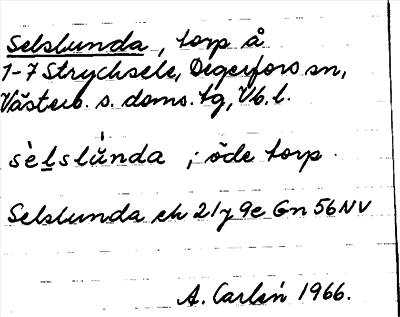 Selslunda, torp å
1-7 Strycksele, Degerfors sn,
Västerb. s. doms. tg, Vb. l.
sèlslúnda ; öde torp.
Selslunda ek 21 7 9e Gn 56 NV
A. Carlén 1966.